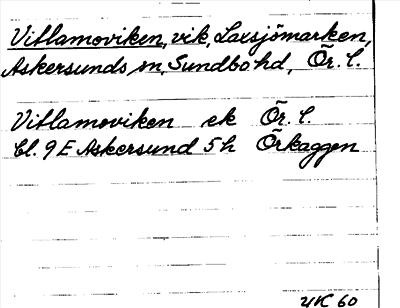 Vitlamoviken, vik, Laxsjömarken,
Askersunds sn, Sundbo hd, Ör. l.
Vitlamoviken ek Ör. l.
bl. 9 E Askersund 5 h Örkaggen
UK 60